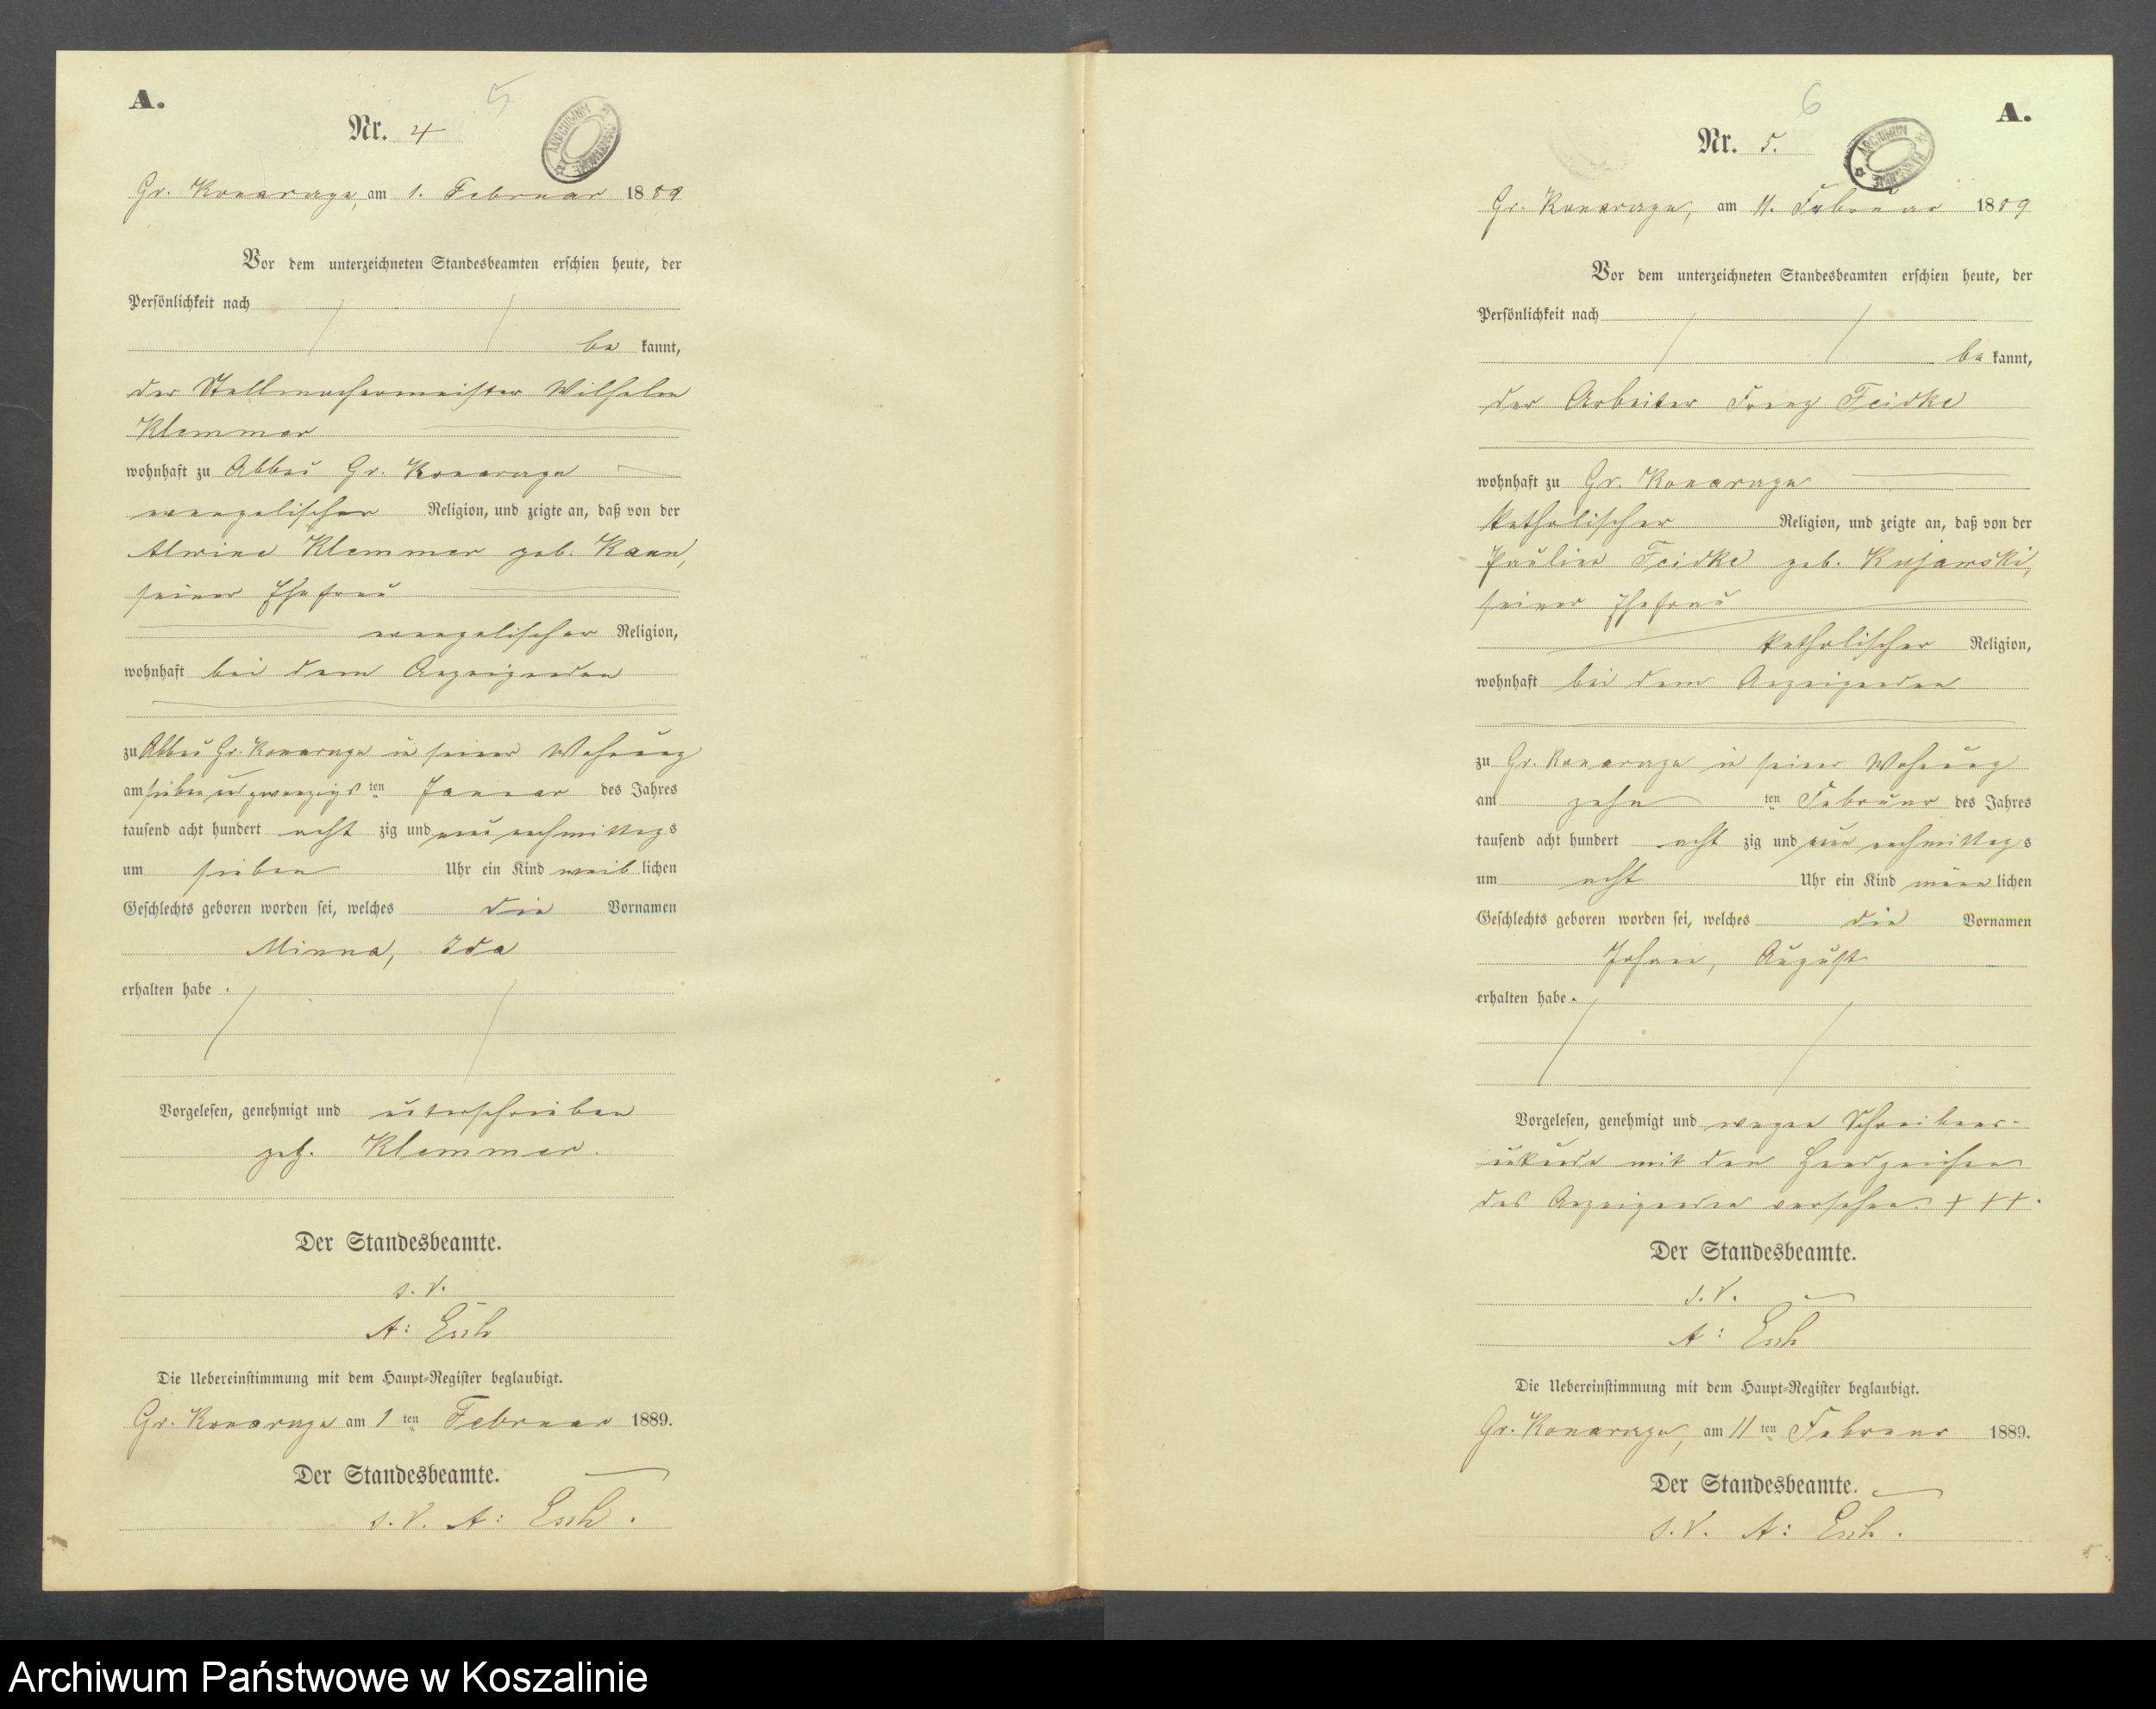 A.
5
Nr. 4
ARCHIWUM PAŃSTWOWE
Gr. Konarczyn, am 1. Februar 1889
Vor dem unterzeichneten Standesbeamten erschien heute, der
Persönlichkeit nach
be kannt,
der Stellmachermeister Wilhelm
Klemmer
wohnhaft zu Abbau Gr. Konarczyn
evangelischer Religion, und zeigte an, daß von der
Alwine Klemmer geb. Kann,
seiner Ehefrau
evangelischer Religion,
wohnhaft bei dem Anzeigenden
zu Abbau Gr. Konarczyn in seiner Wohnung
am sieben und zwanzigsten Januar des Jahres
tausend acht hundert acht zig und neun nachmittags
um sieben Uhr ein Kind weib lichen
Geschlechts geboren worden sei, welches die Vornamen
Minna, Ida
erhalten habe.
Vorgelesen, genehmigt und unterschrieben
gez. Klemmer.
Der Standesbeamte.
s. V.
A: Esch
Die Uebereinstimmung mit dem Haupt-Register beglaubigt.
Gr. Konarczyn am 1 ten Februar 1889.
Der Standesbeamte.
s. V. A: Esch.
6
A.
Nr. 5.
ARCHIWUM PAŃSTWOWE
Gr. Konarczyn, am 11. Februar 1889
Vor dem unterzeichneten Standesbeamten erschien heute, der
Persönlichkeit nach
be kannt,
der Arbeiter Franz Feidke
wohnhaft zu Gr. Konarczyn
katholischer Religion, und zeigte an, daß von der
Pauline Feidke geb. Kujawski,
seiner Ehefrau
katholischer Religion,
wohnhaft bei dem Anzeigenden
zu Gr. Konarczyn in seiner Wohnung
am zehn ten Februar des Jahres
tausend acht hundert acht zig und neun nachmittags
um acht Uhr ein Kind männ lichen
Geschlechts geboren worden sei, welches die Vornamen
Johann, August
erhalten habe.
Vorgelesen, genehmigt und wegen Schreibens-
unkunde mit den Handzeichen
des Anzeigenden versehen. + + +.
Der Standesbeamte.
s. V.
A: Esch
Die Uebereinstimmung mit dem Haupt-Register beglaubigt.
Gr. Konarczyn, am 11 ten Februar 1889.
Der Standesbeamte.
s. V. A: Esch.
Archiwum Państwowe w Koszalinie